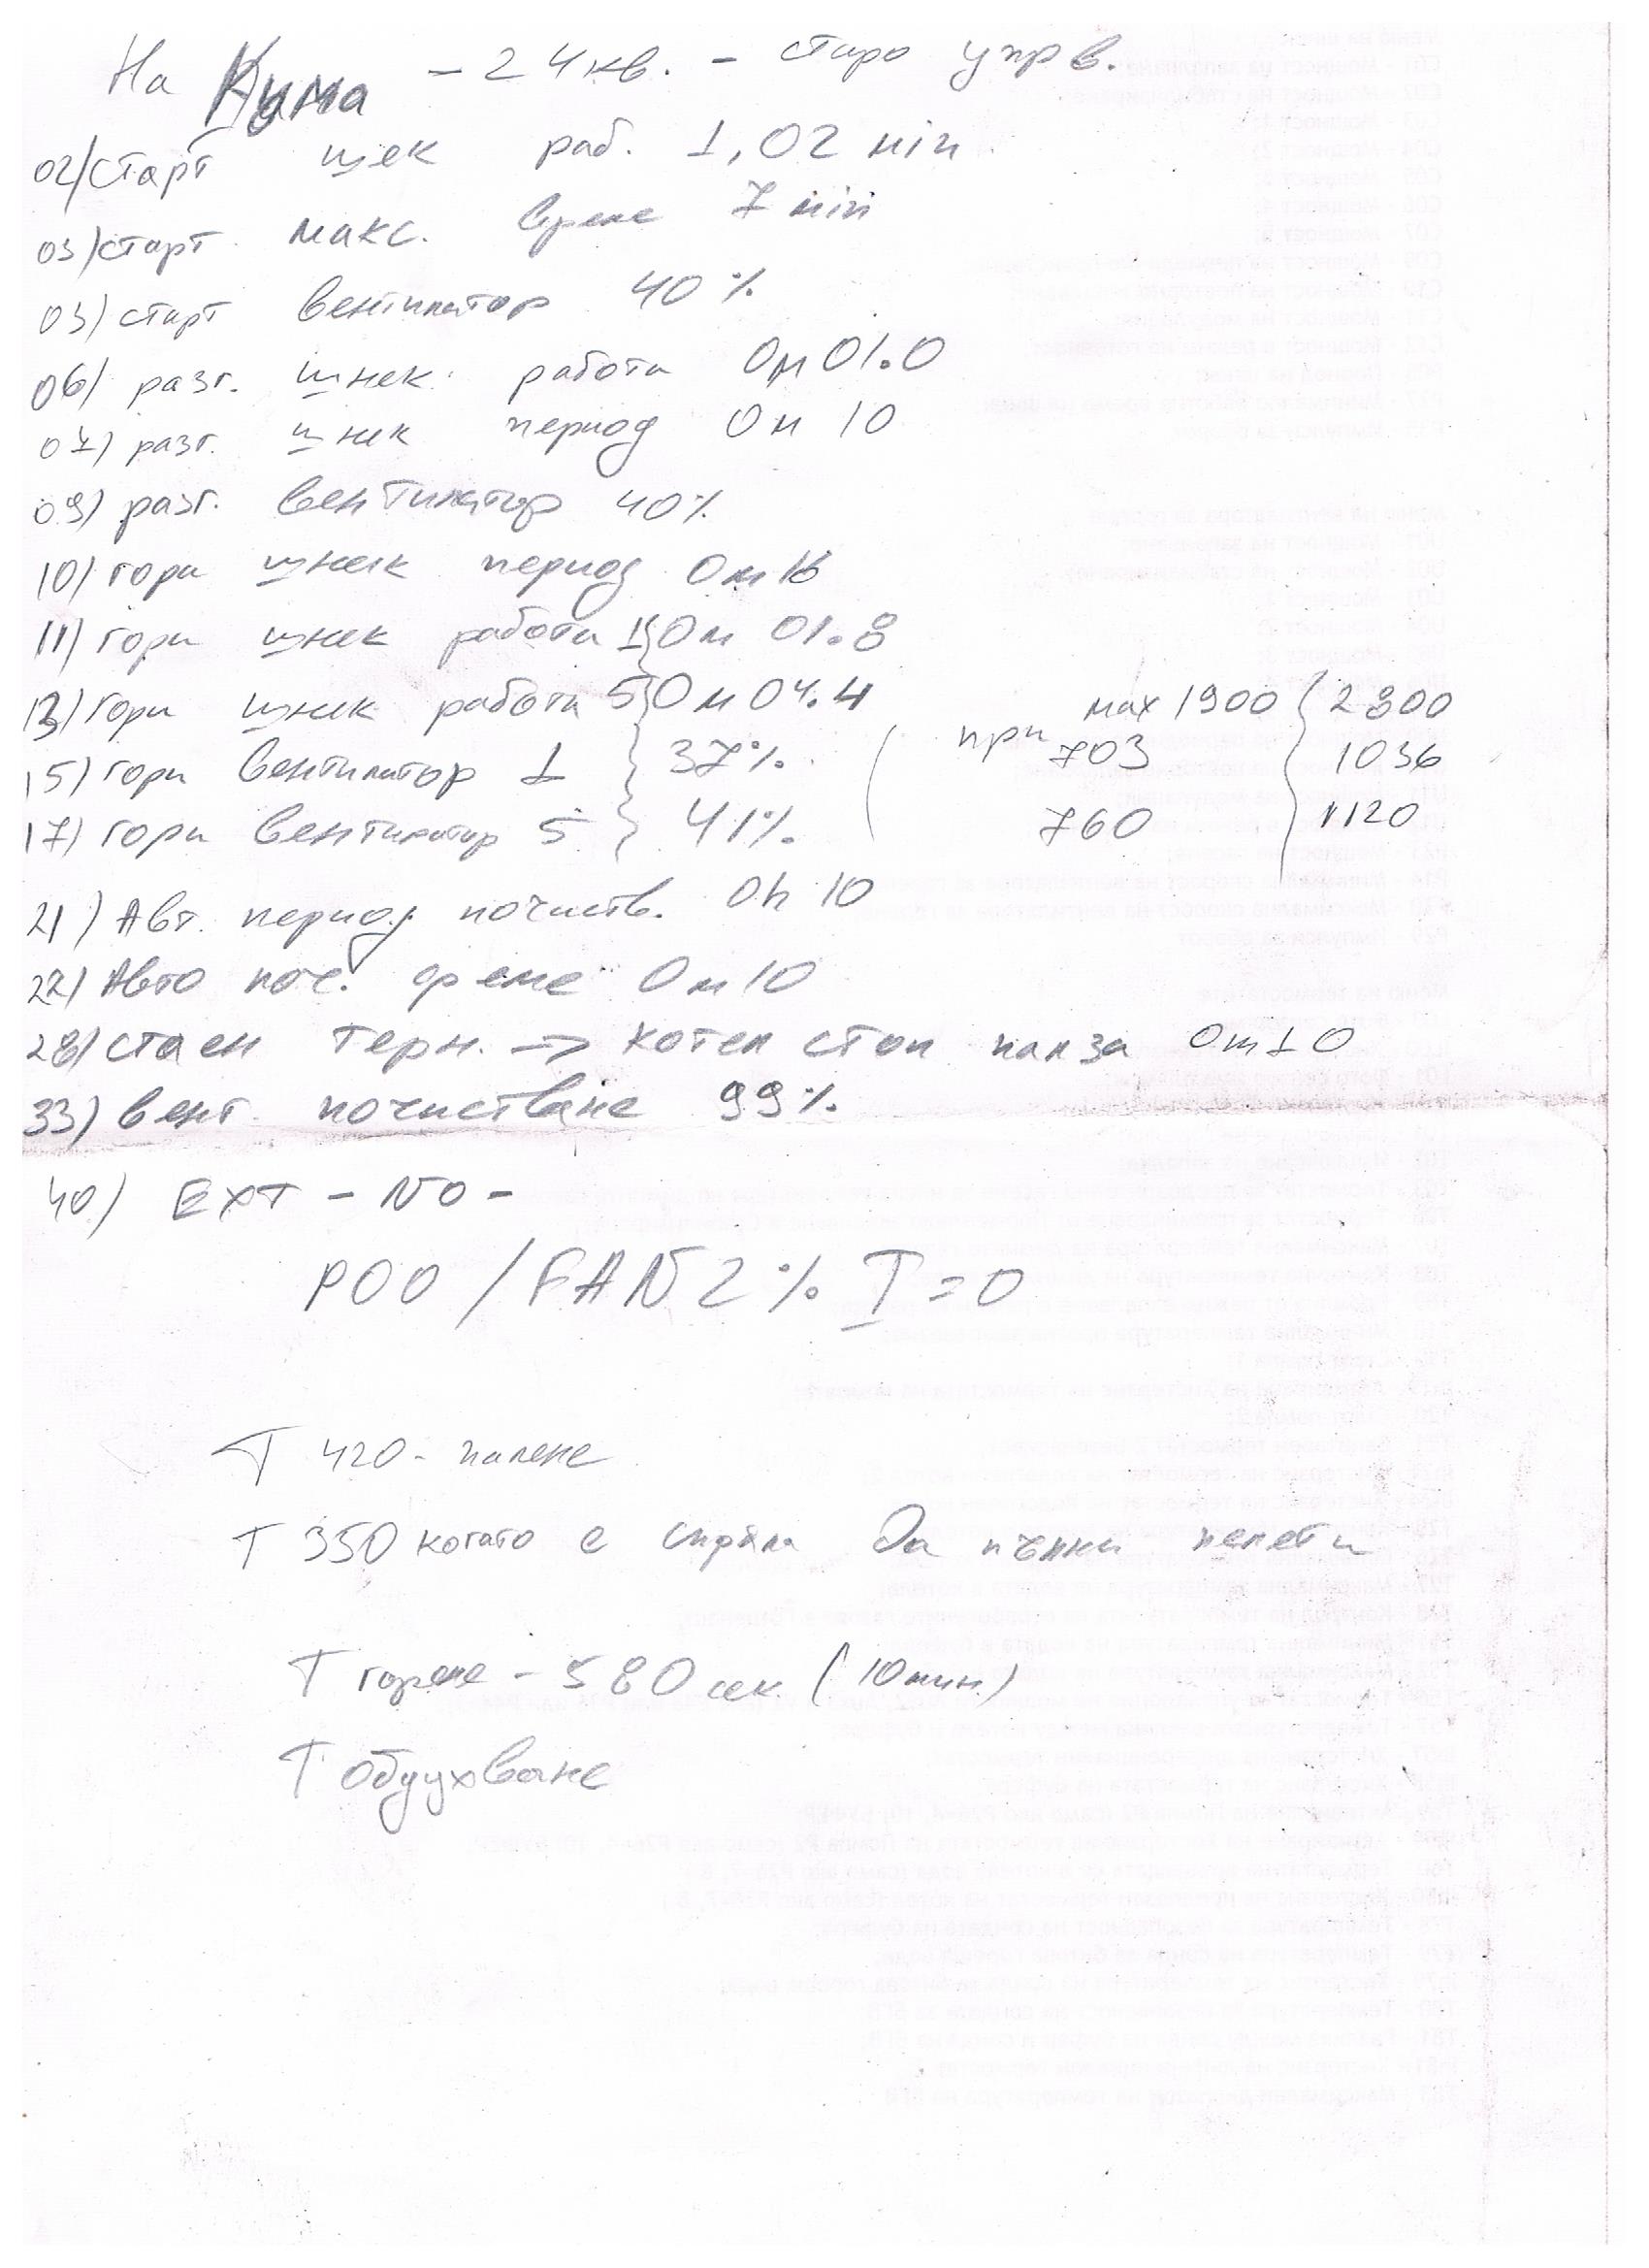 На Кума - 24 кв. - старо упрв.
02/старт шек раб. 1,02 min
03/старт макс. време 7 min
03) старт вентилатор 40%
06) разг. шнек работа 0м 01.0
07) разг. шнек период 0м 10
09) разг. вентилатор 40%
10) гори шнек период 0м 16
11) гори шнек работа 1 } 0м 01.8
13) гори шнек работа 5 } 0м 04.4
мах 1900 { 2800
15) гори вентилатор 1 } 37% ( при 703 1036
17) гори вентилатор 5 } 41% 760 1120
21) Авт. период почиств. 0h 10
22) Авто поч. време 0м 10
28) стаен терм. -> котел стоп пауза 0m10
33) вент. почистване 99%
40) EXT - NO -
P00 / FAN 2 % T = 0
Т 420 - палене
Т 350 когато е спряла да пълни пелети
Т горене - 580 сек (10 мин)
Т обдухване